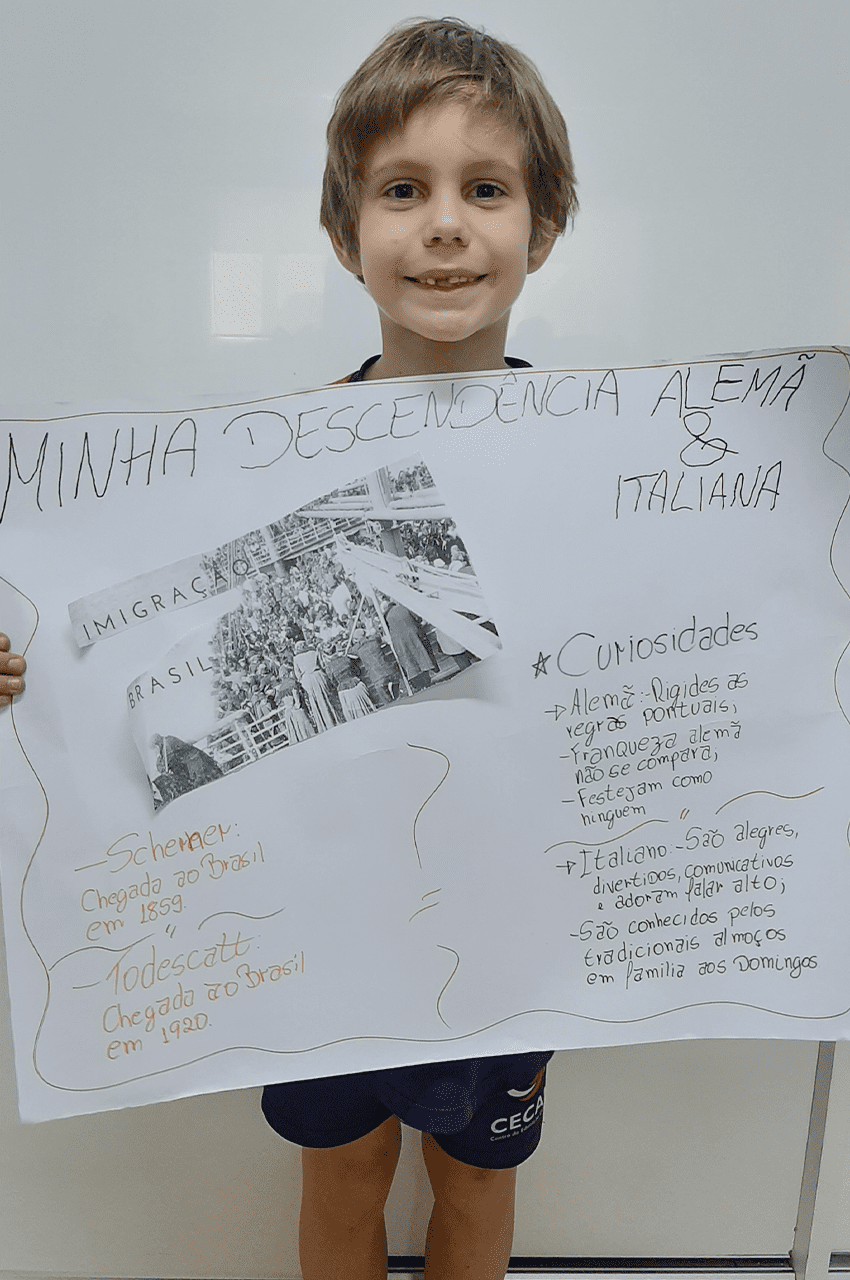 MINHA DESCENDÊNCIA ALEMÃ
&
ITALIANA
IMIGRAÇÃO
BRASIL
—Scherner:
Chegada ao Brasil
em 1859.
"
—Todescatt:
Chegada ao Brasil
em 1920.
=
★ Curiosidades
→ Alemã:-Rigides as
regras pontuais;
-Franqueza alemã
não se compara;
-Festejam como
ninguem
"
→ Italiano:-São alegres,
divertidos, comunicativos
e adoram falar alto;
-São conhecidos pelos
tradicionais almoços
em família aos Domingos
CECA